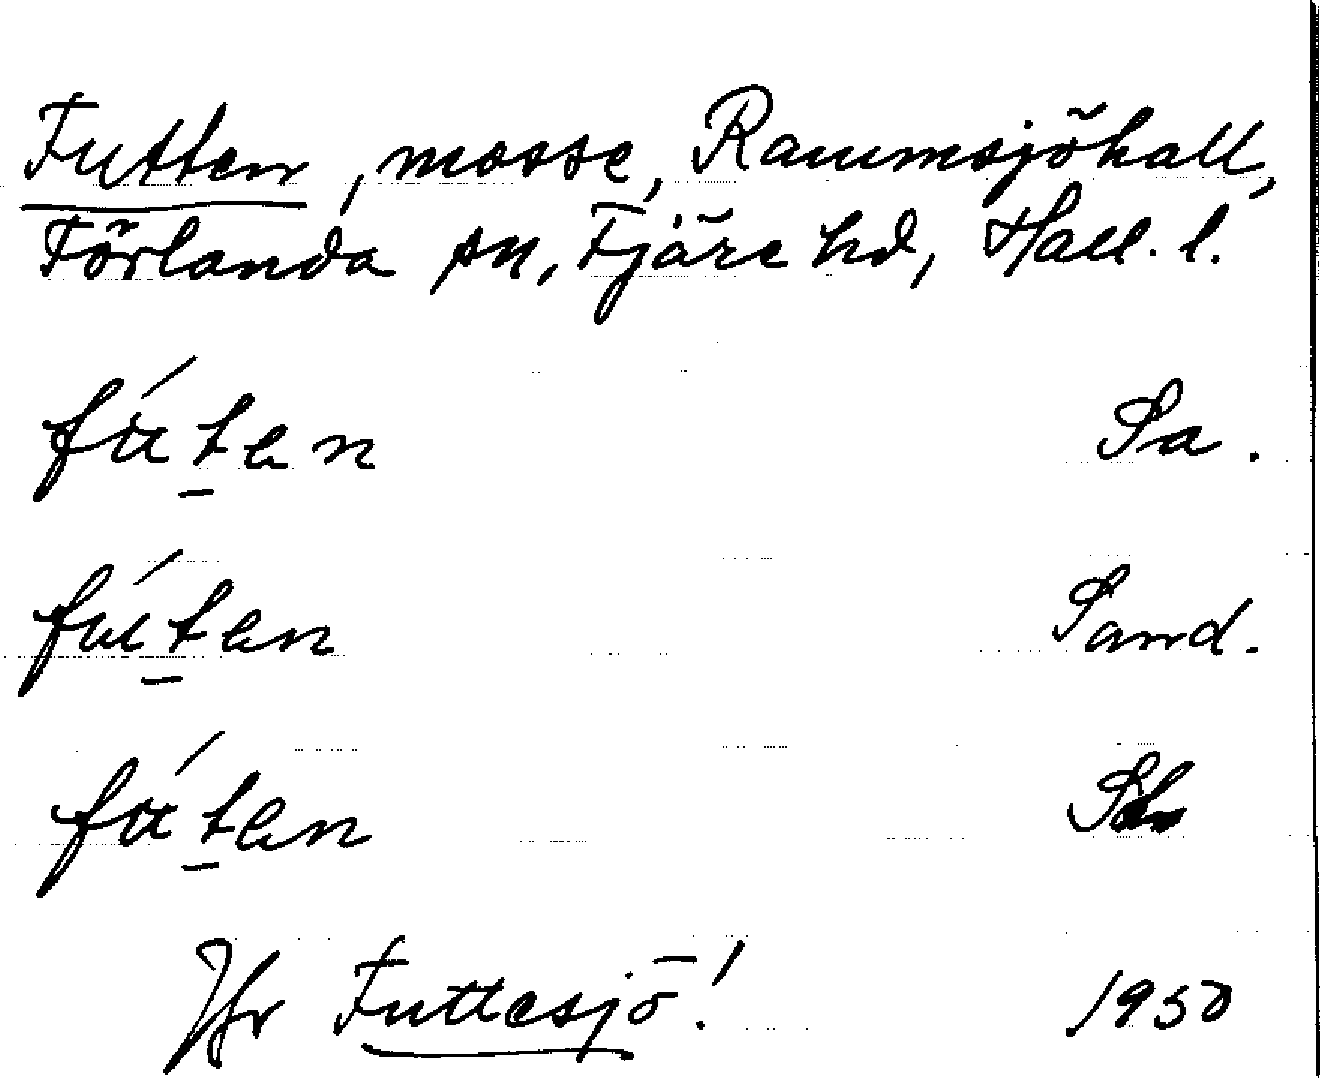 Futten, mosse, Rammsjöhall,
Förlanda sn, Fjäre hd, Hall. l.
fúten Sa.
fúten Sand.
fúten
Jfr Futtesjö! 1950